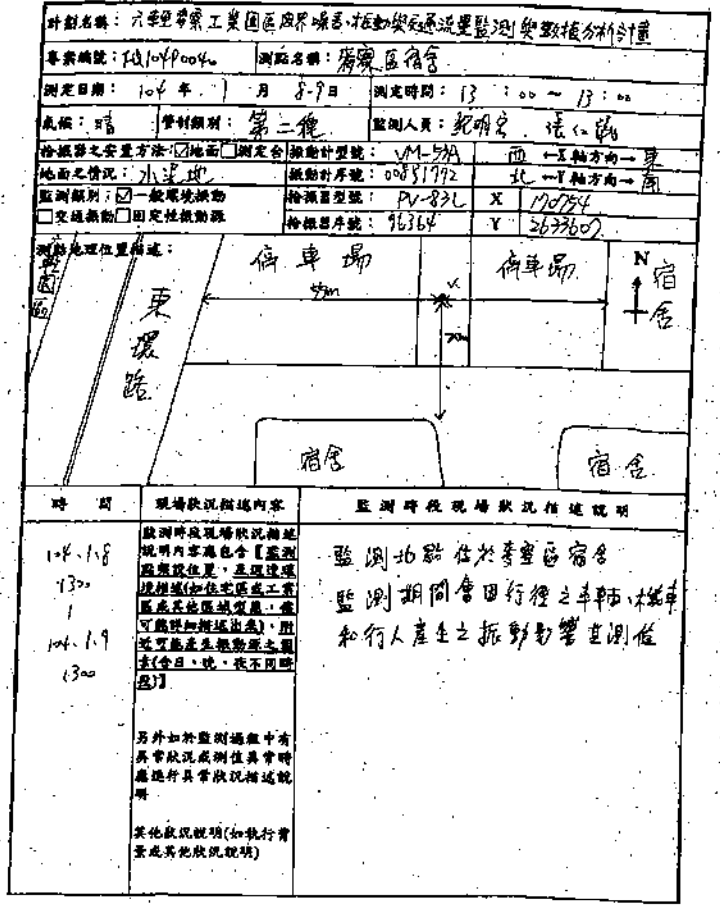 計劃名稱：六輕麥寮工業園區周界噪音、振動與交通流量監測與數據分析計畫
專案編號：FQ104P004 測點名稱：麥寮區宿舍
測定日期：104 年 1 月 8-9日 測定時間：13：00 ~ 13：00
氣候：晴 管制類別：第二種 監測人員：
拾振器之安置方法：☑地面□測定台 振動計型號：VM-53A 西 ←X軸方向→ 東
地面之情況：水泥地 振動計序號：00851792 北 ←Y軸方向→ 南
監測類別：☑一般環境振動 拾振器型號：PV-83C X 170754
□交通振動□固定性振動源 拾振器序號：96364 Y 2633607
測點地理位置描述：
停車場 停車場 N 宿舍
55m
東環路
70m
宿舍 宿舍
時 間 現場狀況描述內容 監測時段現場狀況描述說明
104.1.8
1300
104.1.9
1300
監測時段現場狀況描述
說明內容應包含【監測
點架設位置，及週邊環
境描述(如住宅區或工業
區或其他區域型態，儘
可能詳細描述出來)，附
近可能產生振動源之因
素(含日、晚、夜不同時
段)】
另外如於監測過程中有
異常狀況或測值異常時
應進行異常狀況描述說
明
其他狀況說明(如執行背
景或其他狀況說明)
監測地點位於麥寮區宿舍
監測期間會因行徑之車輛、機車
和行人產生之振動影響其測值